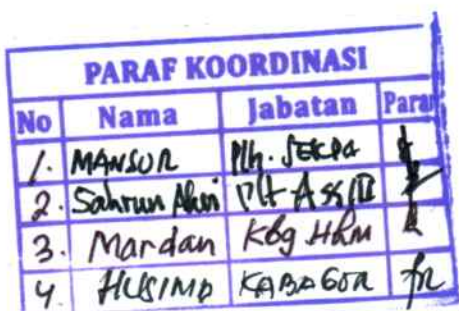 PARAF KOORDINASI
No Nama Jabatan Paraf
1. MANSUR Plh. SEKDA
2. Sahrun Plt Ass II
3. Mardan Kbg Hkm
4. KABAGOR